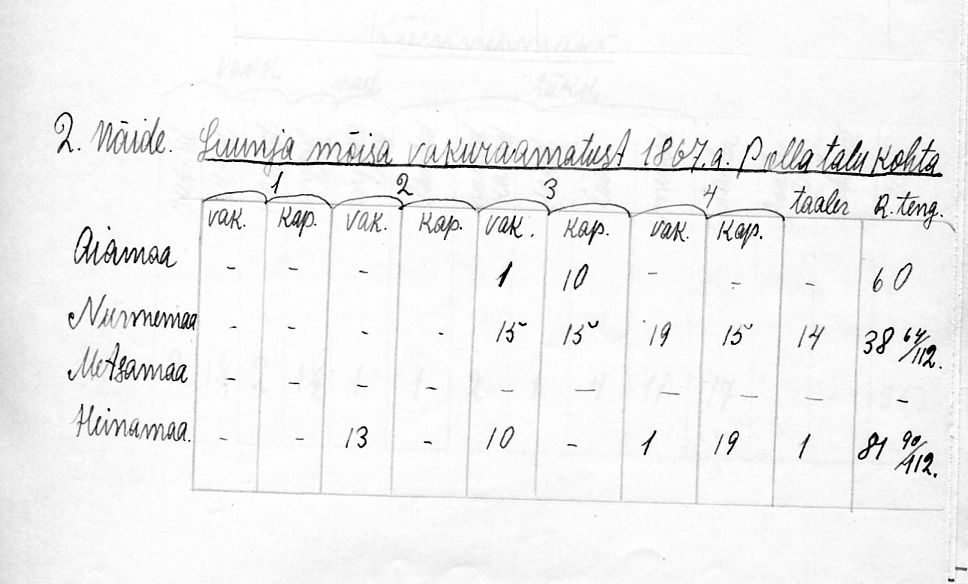 2. Näide. Luunja mõisa vakuraamatust 1867. a. Polla talu kohta
1 2 3 4 taaler R. teng.
vak. kap. vak. kap. vak. kap. vak. kap.
Aiamaa - - - 1 10 - - - 60
Nurmemaa - - - - 15 15 19 15 14 38 64/112.
Metsamaa - - - - - - - - - -
Heinamaa. - - 13 - 10 - 1 19 1 81 90/112.